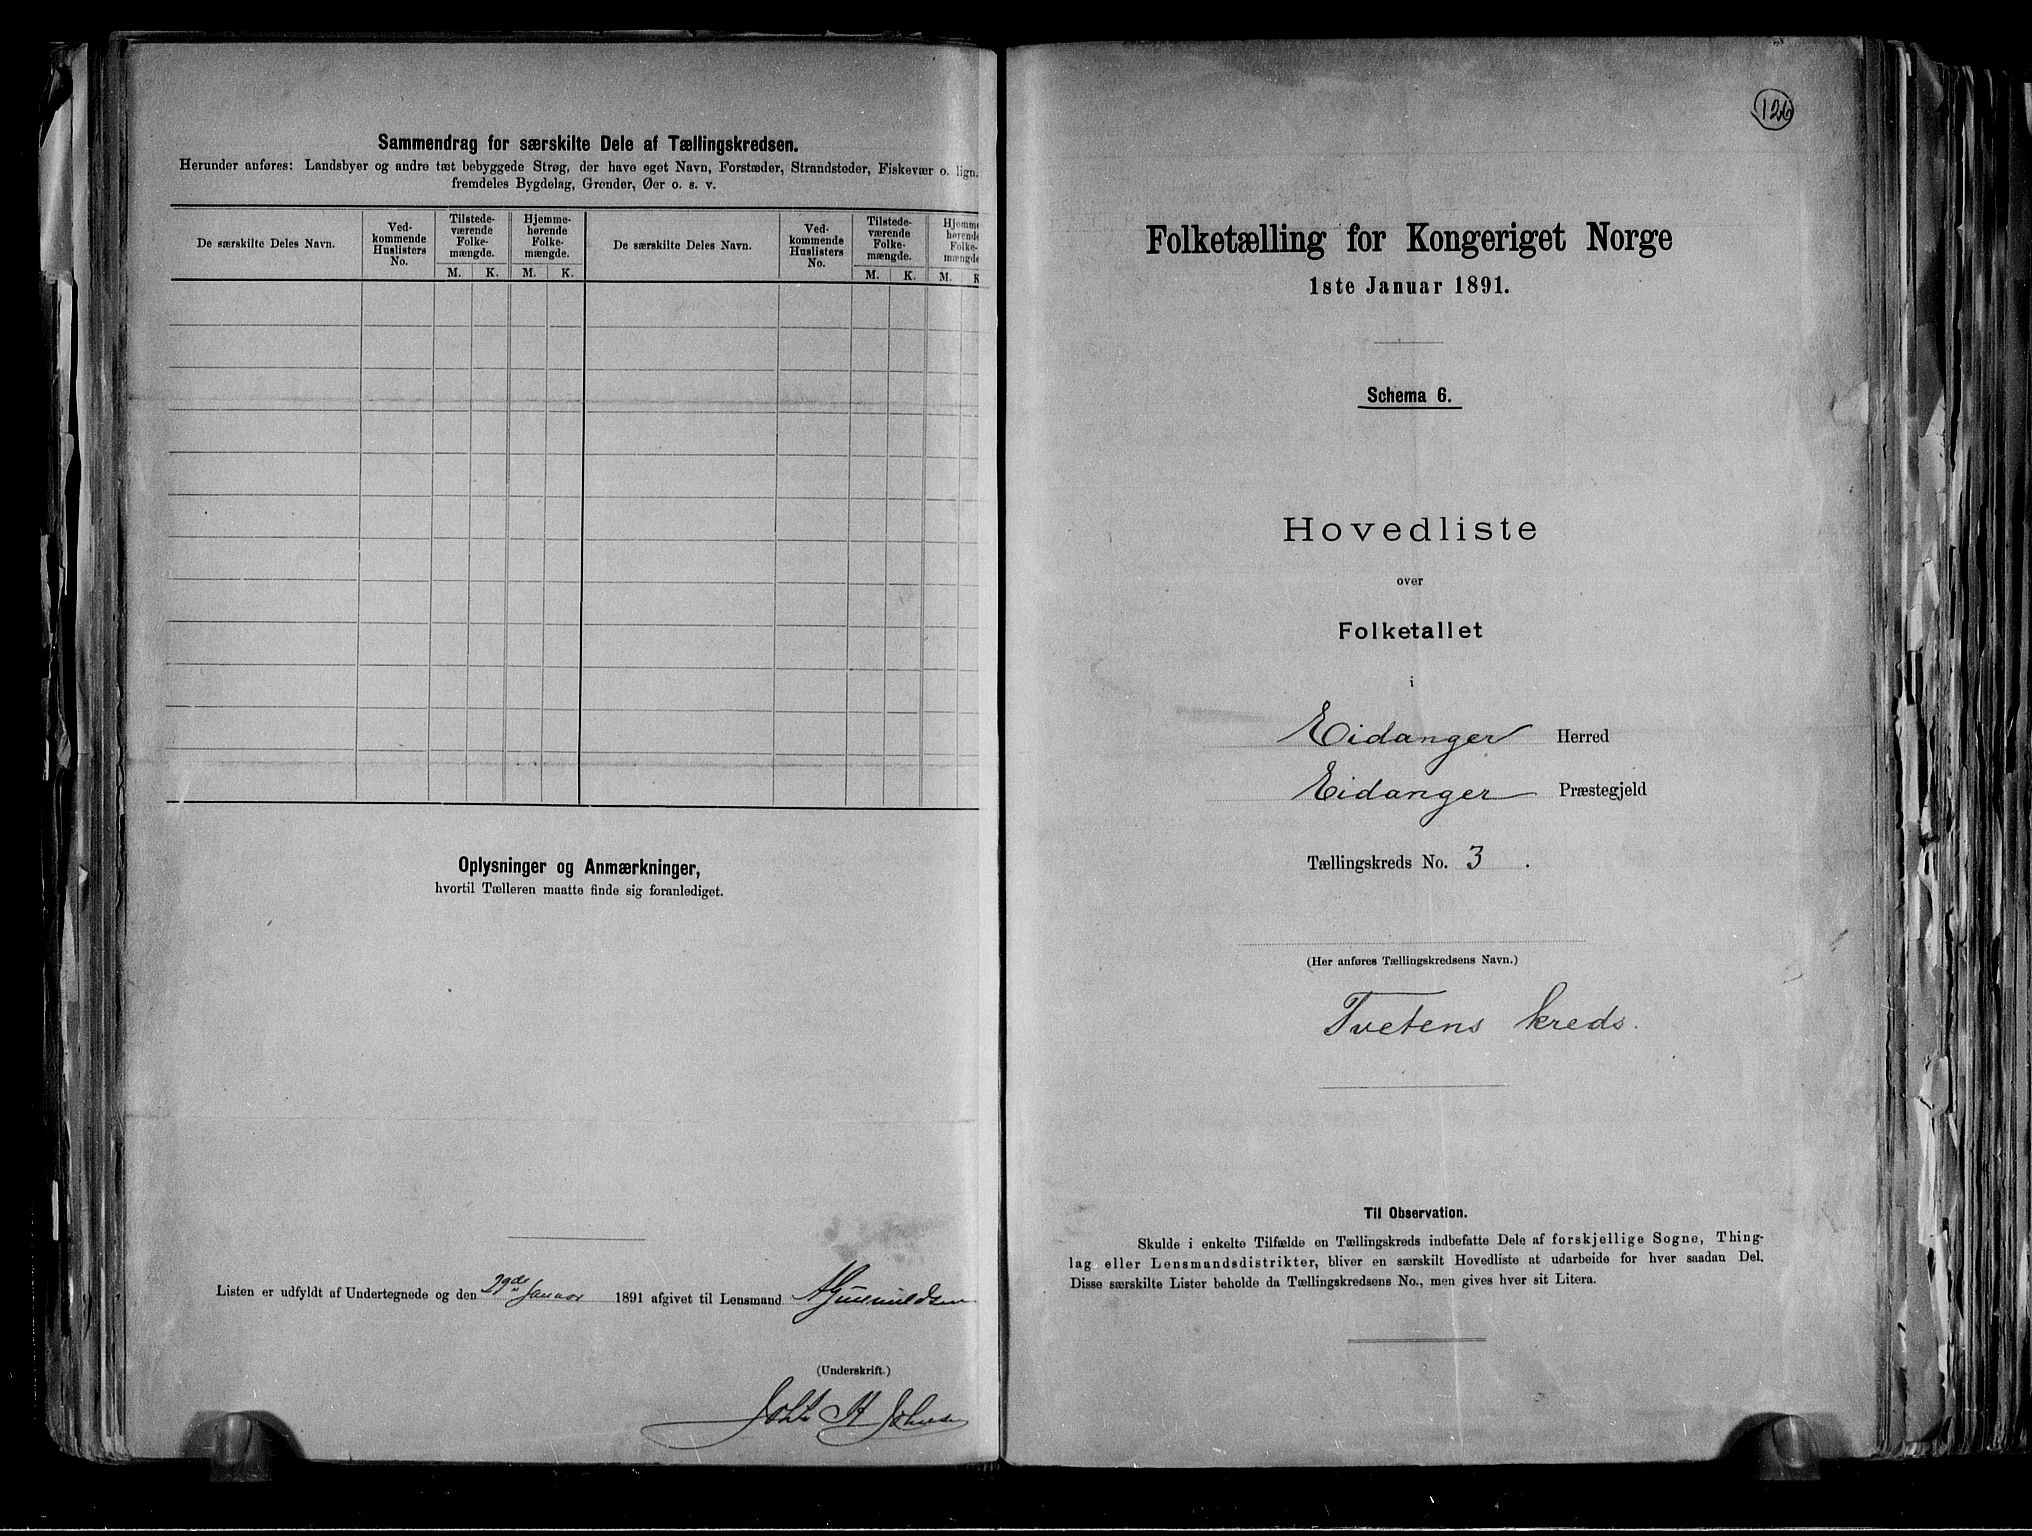 Sammendrag for særskilte Dele af Tællingskredsen.
Herunder anføres: Landsbyer og andre tæt bebyggede Strøg, der have eget Navn, Forstæder, Strandsteder, Fiskevær o. lign.
fremdeles Bygdelag, Grender, Øer o. s. v.
De særskilte Deles Navn.
Ved-
kommende
Huslisters
No.
Tilstede-
værende
Folke-
mængde.
M. K.
Hjemme-
hørende
Folke-
mængde.
M. K.
De særskilte Deles Navn.
Ved-
kommende
Huslisters
No.
Tilstede-
værende
Folke-
mængde.
M. K.
Hjemme
hørende
Folke-
mængde
M. K
Oplysninger og Anmærkninger,
hvortil Tælleren maatte finde sig foranlediget.
Listen er udfyldt af Undertegnede og den 29de Januar 1891 afgivet til Lensmand
(Underskrift.)
126
Folketælling for Kongeriget Norge
1ste Januar 1891.
Schema 6.
Hovedliste
over
Folketallet
i
Eidanger Herred
Eidanger Præstegjeld
Tællingskreds No. 3 .
(Her anføres Tællingskredsens Navn.)
Tvetens kreds.
Til Observation.
Skulde i enkelte Tilfælde en Tællingskreds indbefatte Dele af forskjellige Sogne, Thing-
lag eller Lensmandsdistrikter, bliver en særskilt Hovedliste at udarbeide for hver saadan Del.
Disse særskilte Lister beholde da Tællingskredsens No., men gives hver sit Litera.